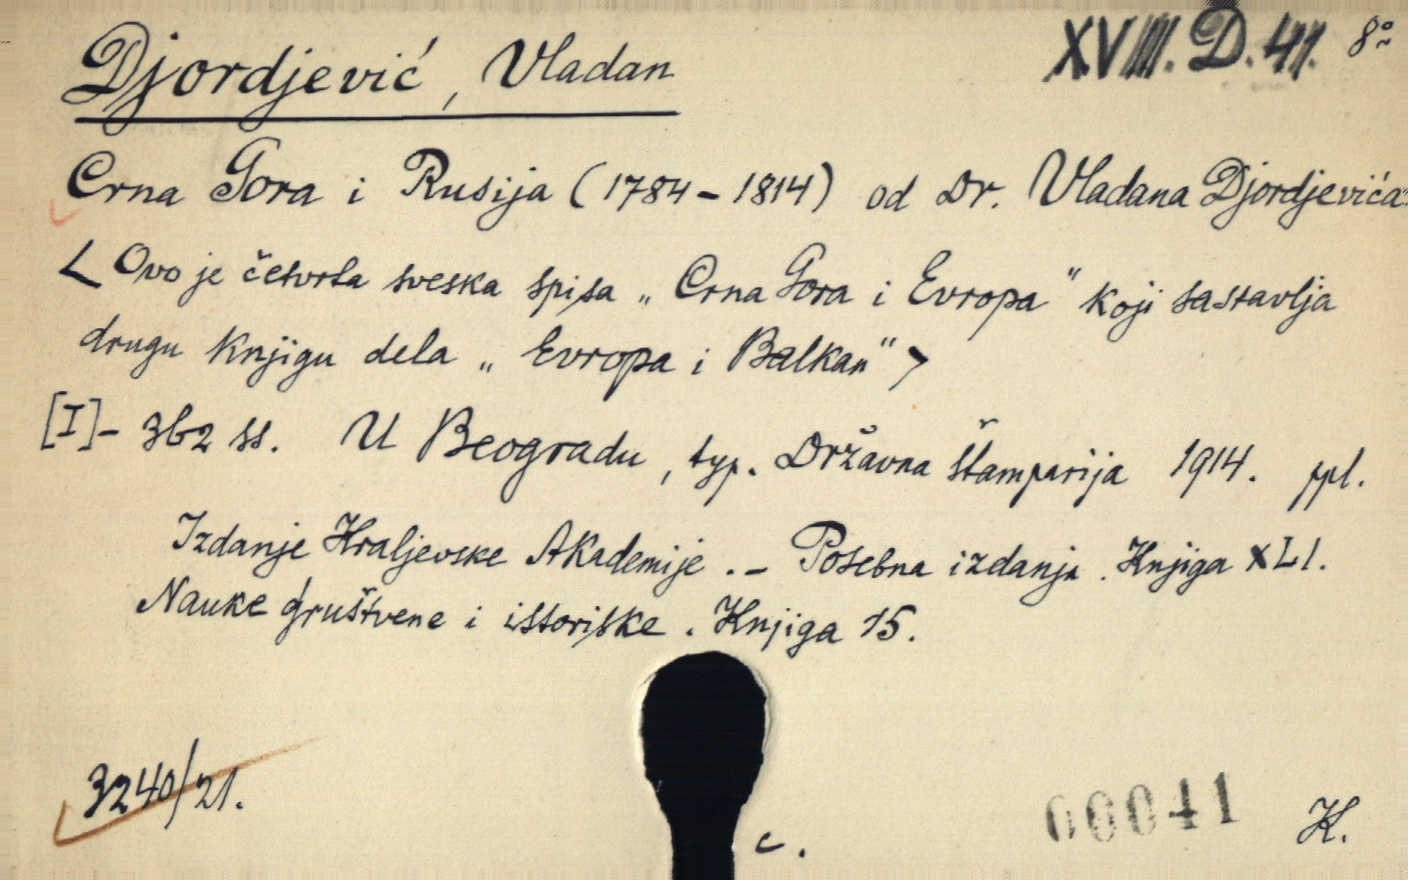 Djordjević, Vladan
XVIII. D. 41. 8°
Crna Gora i Rusija (1784-1814) od Dr. Vladana Djordjevića
< Ovo je četvrta sveska spisa „Crna Gora i Evropa" koji sastavlja
drugu knjigu dela „Evropa i Balkan" >
[I]- 362 ss. U Beogradu, typ. Državna Štamparija 1914. ppl.
Izdanje Kraljevske Akademije .- Posebna izdanja. Knjiga XLI.
Nauke društvene i istoriske. Knjiga 15.
3240/21.
00041
K.
c.